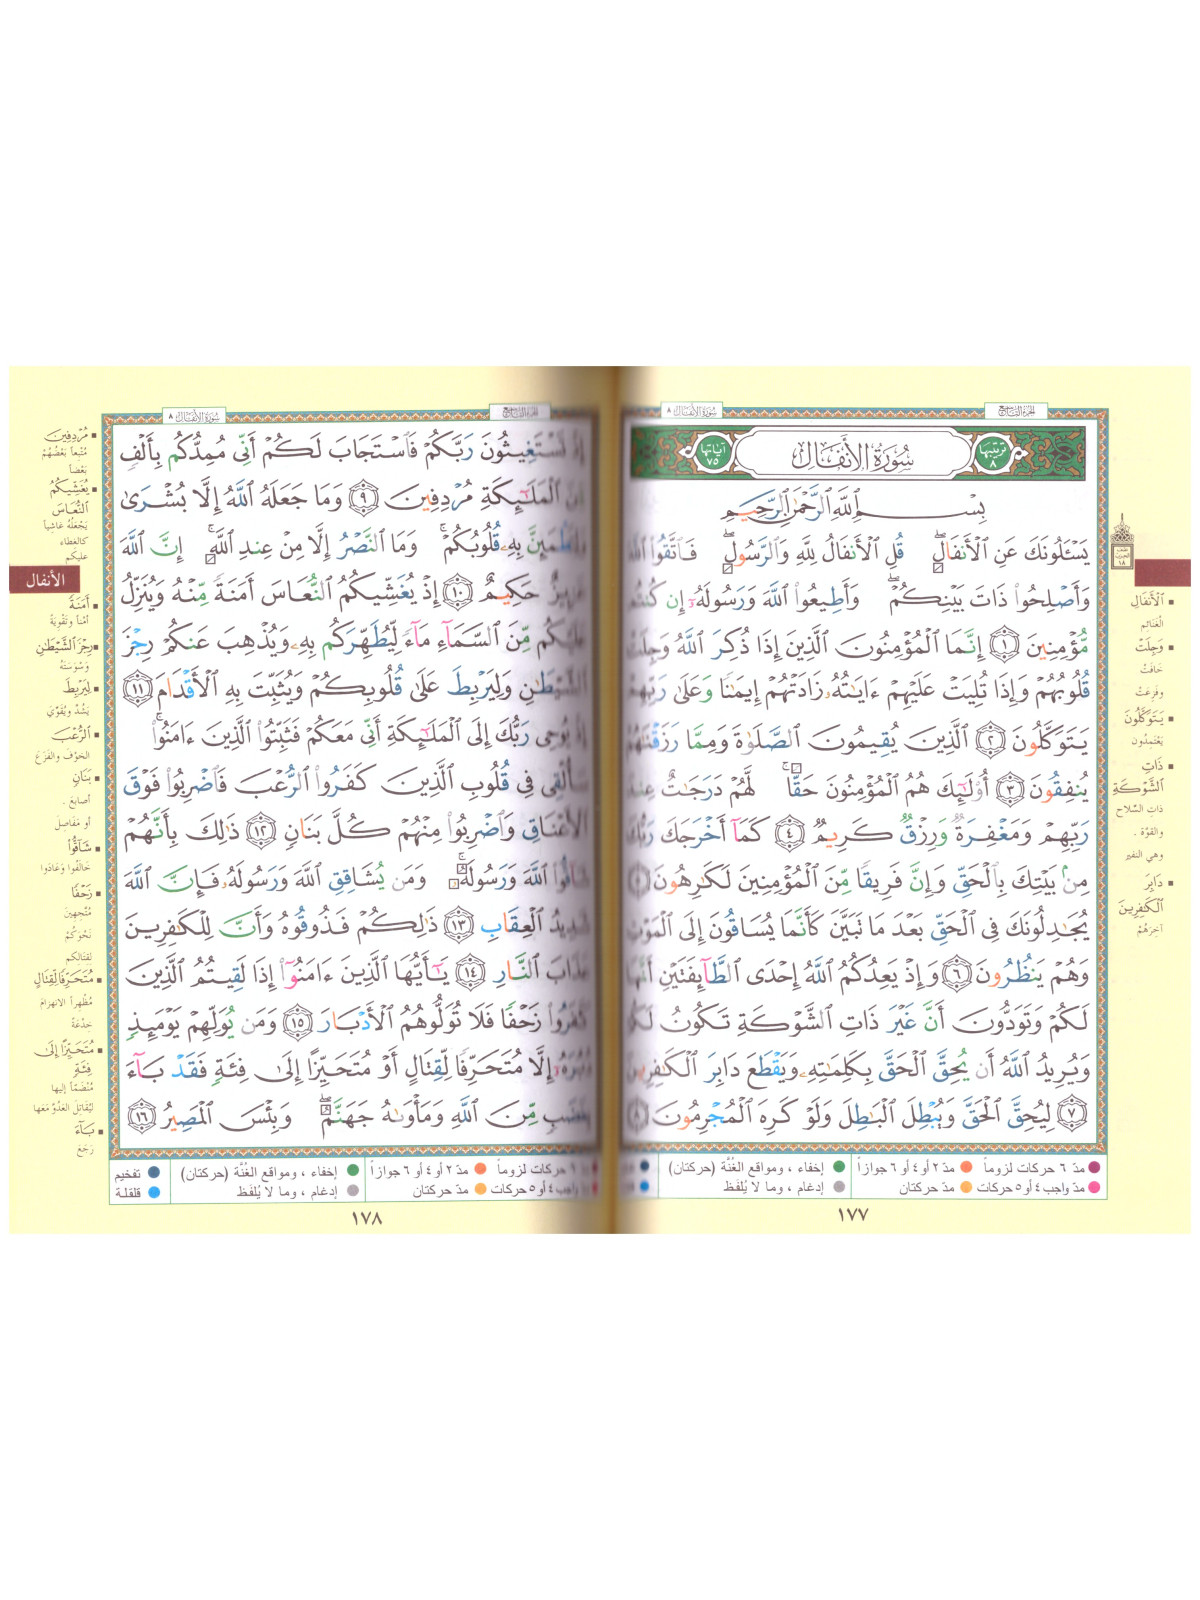 الجزء التاسع
سورة الأنفال ٨
ترتيبها ٨
سُورَةُ الأَنفَالِ
آياتها ٧٥
بِسْمِ ٱللَّهِ ٱلرَّحْمَٰنِ ٱلرَّحِيمِ
يَسْـَٔلُونَكَ عَنِ ٱلْأَنفَالِ ۖ قُلِ ٱلْأَنفَالُ لِلَّهِ وَٱلرَّسُولِ ۖ فَٱتَّقُوا۟ ٱللَّهَ
وَأَصْلِحُوا۟ ذَاتَ بَيْنِكُمْ ۖ وَأَطِيعُوا۟ ٱللَّهَ وَرَسُولَهُۥٓ إِن كُنتُم
مُّؤْمِنِينَ ١ إِنَّمَا ٱلْمُؤْمِنُونَ ٱلَّذِينَ إِذَا ذُكِرَ ٱللَّهُ وَجِلَتْ
قُلُوبُهُمْ وَإِذَا تُلِيَتْ عَلَيْهِمْ ءَايَٰتُهُۥ زَادَتْهُمْ إِيمَٰنًا وَعَلَىٰ رَبِّهِمْ
يَتَوَكَّلُونَ ٢ ٱلَّذِينَ يُقِيمُونَ ٱلصَّلَوٰةَ وَمِمَّا رَزَقْنَٰهُمْ
يُنفِقُونَ ٣ أُو۟لَٰٓئِكَ هُمُ ٱلْمُؤْمِنُونَ حَقًّا ۚ لَّهُمْ دَرَجَٰتٌ عِندَ
رَبِّهِمْ وَمَغْفِرَةٌ وَرِزْقٌ كَرِيمٌ ٤ كَمَآ أَخْرَجَكَ رَبُّكَ
مِنۢ بَيْتِكَ بِٱلْحَقِّ وَإِنَّ فَرِيقًا مِّنَ ٱلْمُؤْمِنِينَ لَكَٰرِهُونَ ٥
يُجَٰدِلُونَكَ فِى ٱلْحَقِّ بَعْدَ مَا تَبَيَّنَ كَأَنَّمَا يُسَاقُونَ إِلَى ٱلْمَوْتِ
وَهُمْ يَنظُرُونَ ٦ وَإِذْ يَعِدُكُمُ ٱللَّهُ إِحْدَى ٱلطَّآئِفَتَيْنِ أَنَّهَا
لَكُمْ وَتَوَدُّونَ أَنَّ غَيْرَ ذَاتِ ٱلشَّوْكَةِ تَكُونُ لَكُمْ
وَيُرِيدُ ٱللَّهُ أَن يُحِقَّ ٱلْحَقَّ بِكَلِمَٰتِهِۦ وَيَقْطَعَ دَابِرَ ٱلْكَٰفِرِينَ
٧ لِيُحِقَّ ٱلْحَقَّ وَيُبْطِلَ ٱلْبَٰطِلَ وَلَوْ كَرِهَ ٱلْمُجْرِمُونَ ٨
نصف الحزب ١٨
الْأَنفَالِ
الغَنَائِمِ
وَجِلَتْ
خَافَتْ
وفَزِعَتْ
يَتَوَكَّلُونَ
يَعْتَمِدُون
ذَاتِ
الشَّوْكَةِ
ذاتِ السِّلاح
والقوّة .
وهي النفير
دَابِرَ
الْكَافِرِينَ
آخِرَهُمْ
مدّ ٦ حركات لزوماً مدّ ٢ أو ٤ أو ٦ جوازاً إخفاء ، ومواقع الغُنَّة (حركتان)
مدّ واجب ٤ أو ٥ حركات مدّ حركتان إدغام ، وما لا يُلفَظ
١٧٧
الجزء التاسع
سورة الأنفال ٨
إِذْ تَسْتَغِيثُونَ رَبَّكُمْ فَٱسْتَجَابَ لَكُمْ أَنِّى مُمِدُّكُم بِأَلْفٍ
مِّنَ ٱلْمَلَٰٓئِكَةِ مُرْدِفِينَ ٩ وَمَا جَعَلَهُ ٱللَّهُ إِلَّا بُشْرَىٰ
وَلِتَطْمَئِنَّ بِهِۦ قُلُوبُكُمْ ۚ وَمَا ٱلنَّصْرُ إِلَّا مِنْ عِندِ ٱللَّهِ ۚ إِنَّ ٱللَّهَ
عَزِيزٌ حَكِيمٌ ١٠ إِذْ يُغَشِّيكُمُ ٱلنُّعَاسَ أَمَنَةً مِّنْهُ وَيُنَزِّلُ
عَلَيْكُم مِّنَ ٱلسَّمَآءِ مَآءً لِّيُطَهِّرَكُم بِهِۦ وَيُذْهِبَ عَنكُمْ رِجْزَ
ٱلشَّيْطَٰنِ وَلِيَرْبِطَ عَلَىٰ قُلُوبِكُمْ وَيُثَبِّتَ بِهِ ٱلْأَقْدَامَ ١١
إِذْ يُوحِى رَبُّكَ إِلَى ٱلْمَلَٰٓئِكَةِ أَنِّى مَعَكُمْ فَثَبِّتُوا۟ ٱلَّذِينَ ءَامَنُوا۟ ۚ
سَأُلْقِى فِى قُلُوبِ ٱلَّذِينَ كَفَرُوا۟ ٱلرُّعْبَ فَٱضْرِبُوا۟ فَوْقَ
ٱلْأَعْنَاقِ وَٱضْرِبُوا۟ مِنْهُمْ كُلَّ بَنَانٍ ١٢ ذَٰلِكَ بِأَنَّهُمْ
شَآقُّوا۟ ٱللَّهَ وَرَسُولَهُۥ ۚ وَمَن يُشَاقِقِ ٱللَّهَ وَرَسُولَهُۥ فَإِنَّ ٱللَّهَ
شَدِيدُ ٱلْعِقَابِ ١٣ ذَٰلِكُمْ فَذُوقُوهُ وَأَنَّ لِلْكَٰفِرِينَ
عَذَابَ ٱلنَّارِ ١٤ يَٰٓأَيُّهَا ٱلَّذِينَ ءَامَنُوٓا۟ إِذَا لَقِيتُمُ ٱلَّذِينَ
كَفَرُوا۟ زَحْفًا فَلَا تُوَلُّوهُمُ ٱلْأَدْبَارَ ١٥ وَمَن يُوَلِّهِمْ يَوْمَئِذٍ
دُبُرَهُۥٓ إِلَّا مُتَحَرِّفًا لِّقِتَالٍ أَوْ مُتَحَيِّزًا إِلَىٰ فِئَةٍ فَقَدْ بَآءَ
بِغَضَبٍ مِّنَ ٱللَّهِ وَمَأْوَىٰهُ جَهَنَّمُ ۖ وَبِئْسَ ٱلْمَصِيرُ ١٦
مُرْدِفِينَ
مُتْبِعاً بَعْضُهُمْ
بَعْضاً
يُغَشِّيكُمُ
النُّعَاسَ
يَجْعَلُهُ غاشِياً
كالغطاءِ
عليكم
الأنفال
أَمَنَةً
أمْناً وتَقْوِيةً
رِجْزَ الشَّيْطَانِ
وَسْوَسَتَهُ
لِيَرْبِطَ
يَشُدَّ ويُقَوِّيَ
الرُّعْبَ
الخوْفَ والفزَعَ
بَنَانٍ
أصابعَ .
أو مَفَاصِلَ
شَآقُّوا
خَالَفُوا وَعَادَوا
زَحْفًا
مُتَّجِهِينَ
نَحْوَكُمْ
لِقِتَالِكم
مُتَحَرِّفًا لِّقِتَالٍ
مُظْهِراً الانهزامَ
خِدْعَةً
مُتَحَيِّزًا إِلَى
فِئَةٍ
مُنْضَمّاً إليها
ليُقاتِلَ العَدُوَّ مَعَها
بَآءَ
رَجَعَ
٦ حركات لزوماً مدّ ٢ أو ٤ أو ٦ جوازاً إخفاء ، ومواقع الغُنَّة (حركتان) تفخيم
واجب ٤ أو ٥ حركات مدّ حركتان إدغام ، وما لا يُلفَظ قلقلة
١٧٨